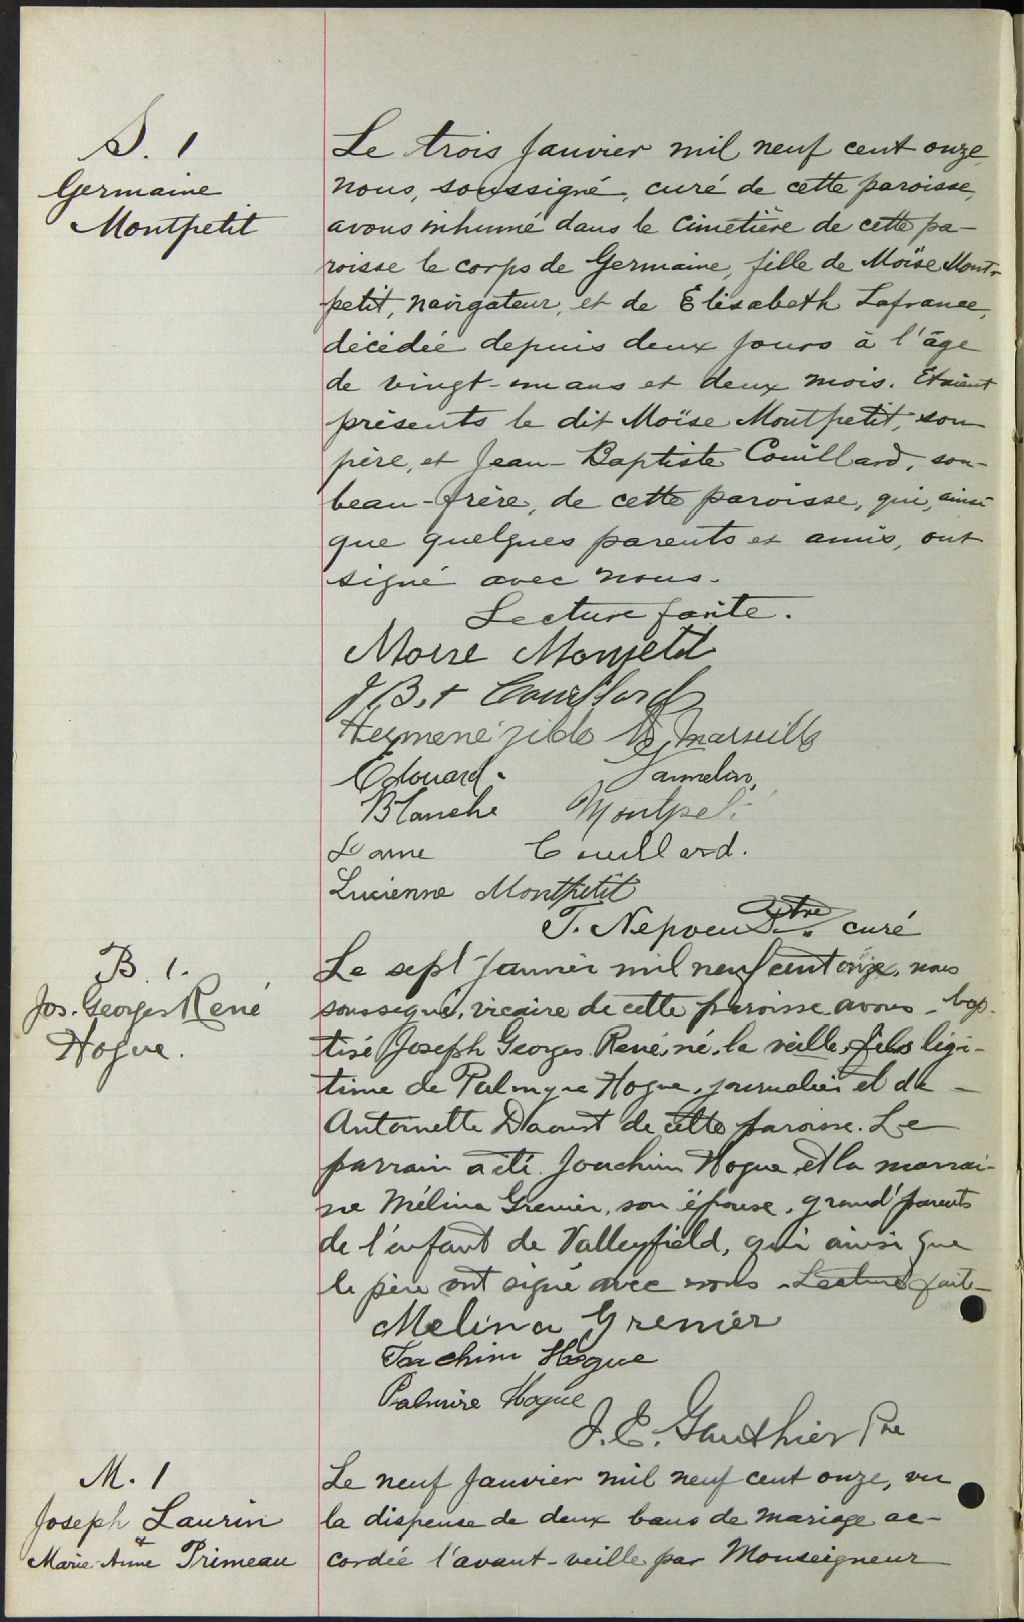 S. 1
Germaine
Montpetit
Le trois Janvier mil neuf cent onze,
nous, soussigné, curé de cette paroisse,
avons inhumé dans le cimetière de cette pa-
roisse le corps de Germaine, fille de Moïse Mont-
petit, navigateur, et de Elisabeth Lafrance,
décédée depuis deux jours à l'âge
de vingt-un ans et deux mois. Etaient
présents le dit Moïse Montpetit, son
père, et Jean-Baptiste Couillard, son
beau-frère, de cette paroisse, qui, ainsi
que quelques parents et amis, ont
signé avec nous.
Lecture faite.
Moise Monpetit
J B.t Couillard
Hermenégilde Marseille
Edouard
Blanche Montpeti
Dame Couillard.
Lucienne Montpetit
T. Nepveu Ptre curé
B 1.
Jos. Georges René
Hogue.
Le sept Janvier mil neuf cent onze, nous
soussigné, vicaire de cette paroisse avons bap-
tisé Joseph Georges René, né la veille, fils légi-
time de Palmyre Hogue, journalier et de
Antoinette Daoust de cette paroisse. Le
parrain a été Joachim Hogue et la marrai-
ne Mélina Grenier, son épouse, grand'parents
de l'enfant de Valleyfield, qui ainsi que
le père ont signé avec nous. Lecture faite
Melina Grenier
Joachim Hogue
Palmire Hogue
J. E. Gauthier Ptre
M. 1
Joseph Laurin
+
Marie-Anne Primeau
Le neuf Janvier mil neuf cent onze, vu
la dispense de deux bans de mariage ac-
cordée l'avant-veille par Monseigneur